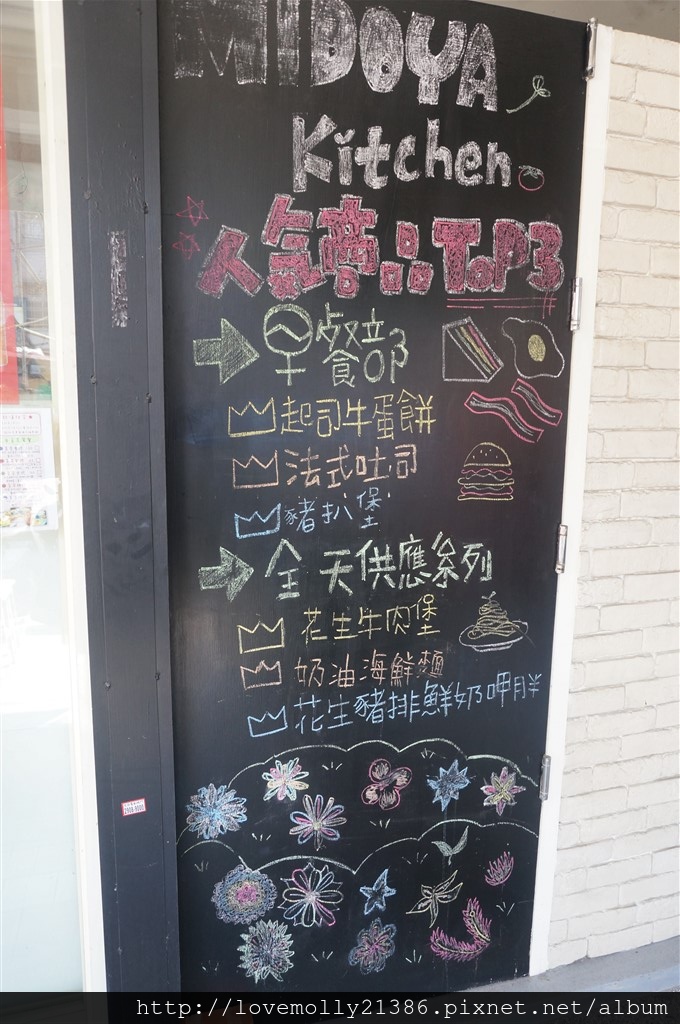 MIDOYA
Kitchen
人氣商品TOP3
早餐部
起司牛蛋餅
法式吐司
豬扒堡
全天供應系列
花生牛肉堡
奶油海鮮麵
花生豬排鮮奶呷胖
http://lovemolly21386.pixnet.net/album